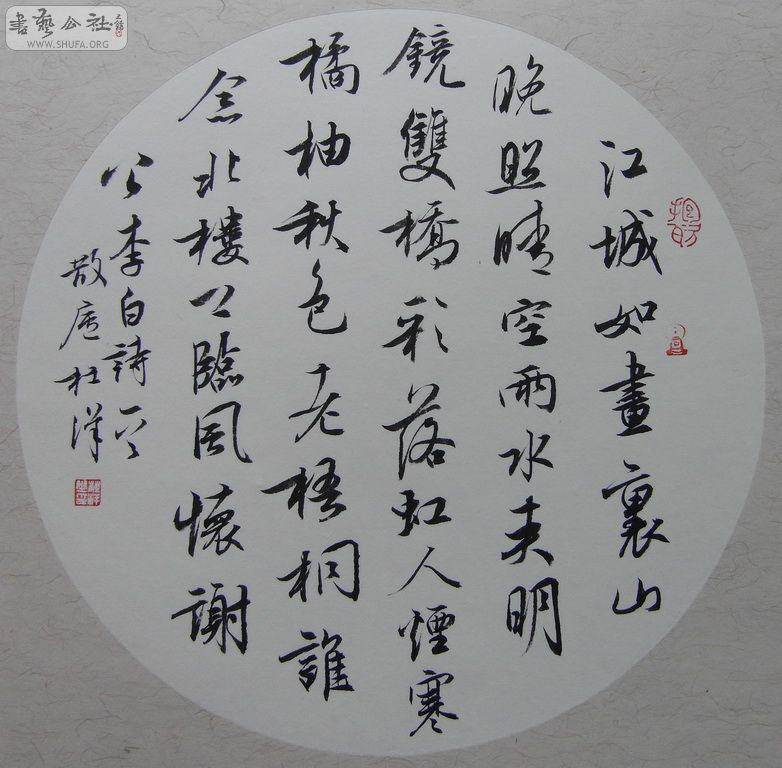 書藝公社
WWW.SHUFA.ORG
江城如畫裏山
晚照晴空兩水夾明
鏡雙橋彩落虹人煙寒
橘柚秋色老梧桐誰
念北樓上臨風懷謝
公李白詩一首
散 杜洋